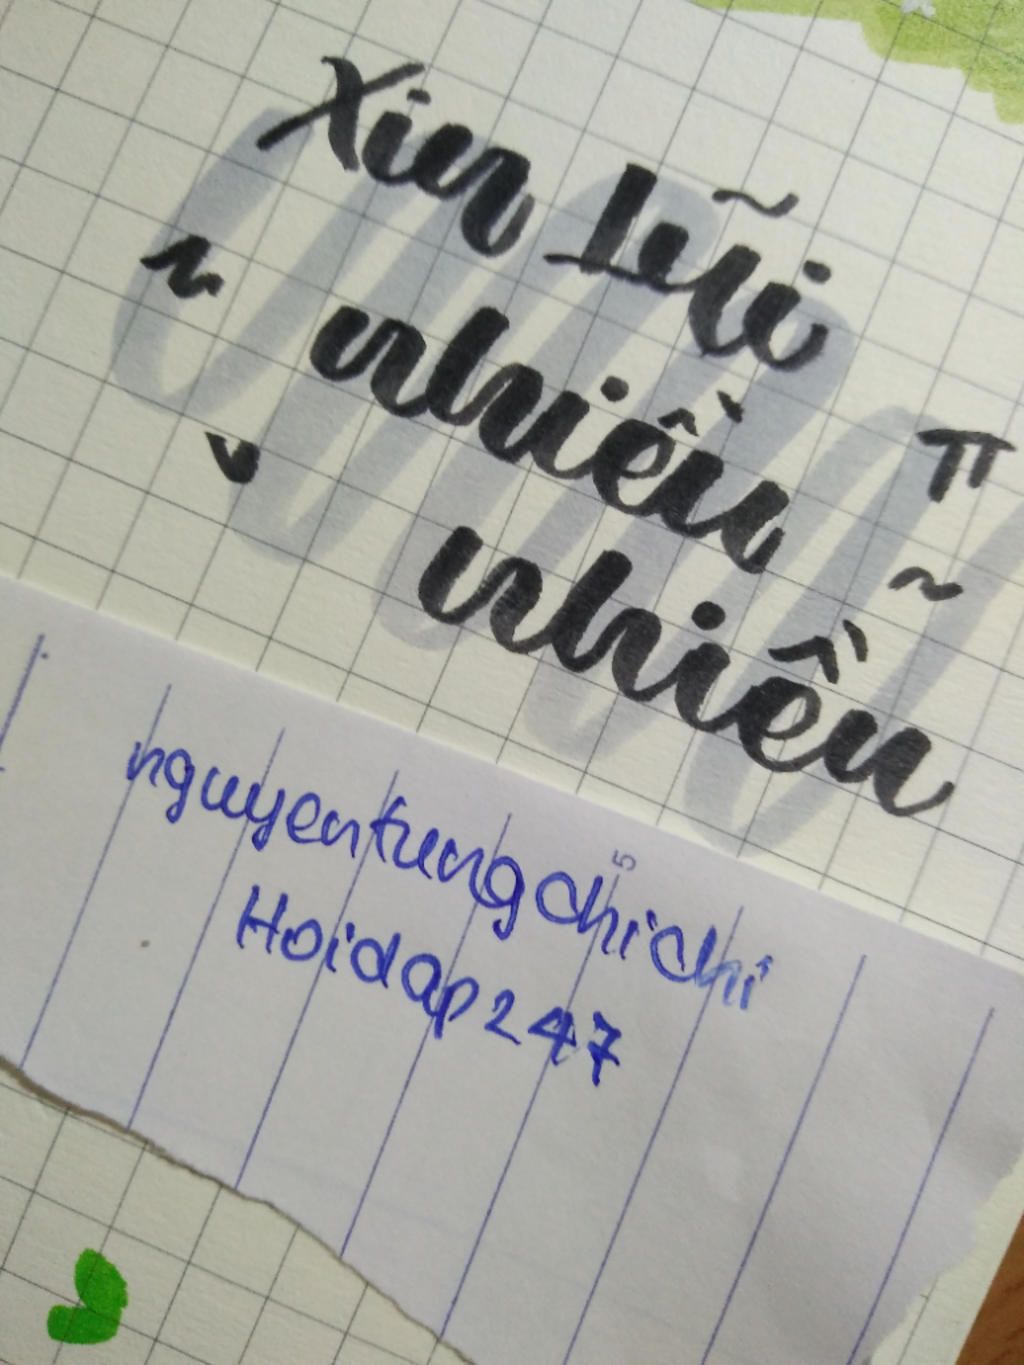 Xin lũi
nhiều
nhiều
nguyentungchichi
Hoidap247